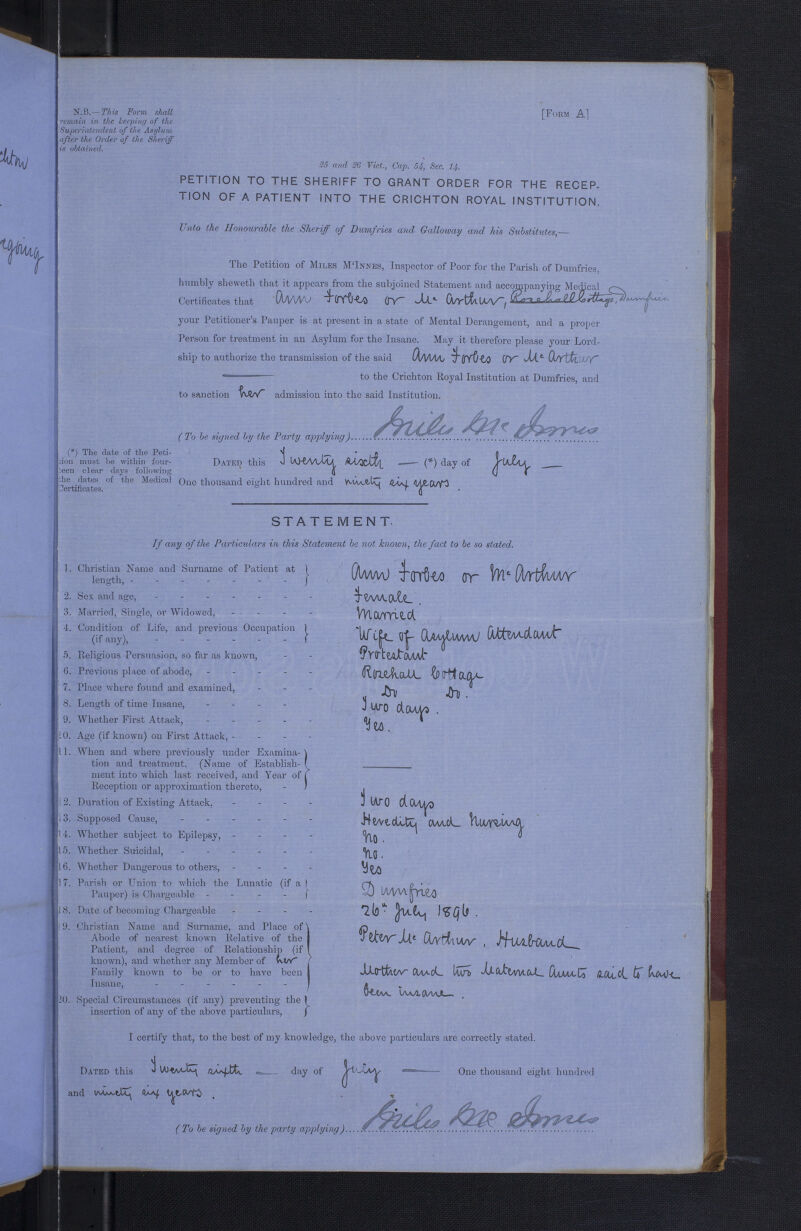 chton
rgoing
N.B.—This Form shall
remain in the keeping of the
Superintendent of the Asylum
after the Order of the Sheriff
is obtained.
[FORM A]
25 and 26 Vict., Cap. 54, Sec. 14.
PETITION TO THE SHERIFF TO GRANT ORDER FOR THE RECEP-
TION OF A PATIENT INTO THE CRICHTON ROYAL INSTITUTION.
Unto the Honourable the Sheriff of Dumfries and Galloway and his Substitutes,—
The Petition of MILES M'INNES, Inspector of Poor for the Parish of Dumfries,
humbly sheweth that it appears from the subjoined Statement and accompanying Medical
Certificates that Ann Forbes or Mc Arthur, Rosehall Cottage, Dumfries
your Petitioner's Pauper is at present in a state of Mental Derangement, and a proper
Person for treatment in an Asylum for the Insane. May it therefore please your Lord-
ship to authorize the transmission of the said Ann Forbes or Mc Arthur
— to the Crichton Royal Institution at Dumfries, and
to sanction her admission into the said Institution.
(To be signed by the Party applying) Miles McInnes
(*) The date of the Peti-
tion must be within four-
teen clear days following
the dates of the Medical
Certificates.
DATED this Twenty sixth — (*) day of July —
One thousand eight hundred and ninety six years.
STATEMENT.
If any of the Particulars in this Statement be not known, the fact to be so stated.
1. Christian Name and Surname of Patient at length, - Ann Forbes or McArthur
2. Sex and age, - Female.
3. Married, Single, or Widowed, - Married
4. Condition of Life, and previous Occupation (if any), - Wife of Asylum Attendant
5. Religious Persuasion, so far as known, - Protestant
6. Previous place of abode, - Rosehall Cottage
7. Place where found and examined, - Do Do.
8. Length of time Insane, - Two days.
9. Whether First Attack, - Yes.
10. Age (if known) on First Attack, -
11. When and where previously under Examina-
tion and treatment. (Name of Establish-
ment into which last received, and Year of
Reception or approximation thereto, - —
12. Duration of Existing Attack, - Two days
13. Supposed Cause, - Heredity and Nursing
14. Whether subject to Epilepsy, - No.
15. Whether Suicidal, - No.
16. Whether Dangerous to others, - Yes
17. Parish or Union to which the Lunatic (if a
Pauper) is Chargeable - Dumfries
18. Date of becoming Chargeable - 26th July 1896.
19. Christian Name and Surname, and Place of
Abode of nearest known Relative of the
Patient, and degree of Relationship (if
known), and whether any Member of her
Family known to be or to have been
Insane, -
Peter Mc Arthur, Husband
Mother and two Maternal Aunts said to have
been insane.
20. Special Circumstances (if any) preventing the
insertion of any of the above particulars,
I certify that, to the best of my knowledge, the above particulars are correctly stated.
DATED this Twenty sixth — day of July — One thousand eight hundred
and ninety six years.
(To be signed by the party applying) Miles McInnes